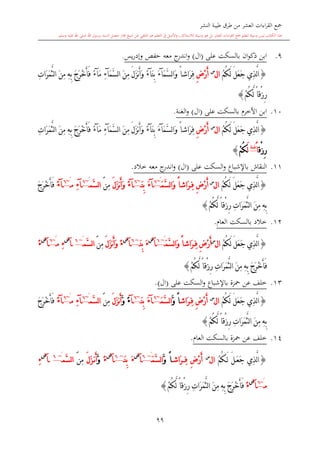 جمع القراءات العشر من طرق طيبة النشر
٩. ابن ذكوان بالسكت على (ال) واندرج معه حفص وإدريس.
﴿ الَّذِي جَعَلَ لَكُمُ الْأَرْضَ فِرَاشاً وَالسَّمَآءَ بِنَآءً وَأَنْزَلَ مِنَ السَّمَآءِ مَآءً فَأَخْرَجَ بِهِ مِنَ الثَّمَرَاتِ
رِزْقاً لَكُمْ ﴾
١٠. ابن الأخرم بالسكت على (ال) والغنة.
﴿ الَّذِي جَعَلَ لَكُمُ الْأَرْضَ فِرَاشاً وَالسَّمَآءَ بِنَآءً وَأَنْزَلَ مِنَ السَّمَآءِ مَآءً فَأَخْرَجَ بِهِ مِنَ الثَّمَرَاتِ
رِزْقاً لَكُمْ ﴾
١١. النقاش بالإشباع والسكت على (ال) واندرج معه خلاد.
﴿ الَّذِي جَعَلَ لَكُمُ الْأَرْضَ فِرَاشاً وَالسَّمَآءَ بِنَآءً وَأَنْزَلَ مِنَ السَّمَآءِ مَآءً فَأَخْرَجَ
بِهِ مِنَ الثَّمَرَاتِ رِزْقاً لَكُمْ ﴾
١٢. خلاد بالسكت العام.
﴿ الَّذِي جَعَلَ لَكُمُ الْأَرْضَ فِرَاشاً وَالسَّمَآءَ بِنَآءً وَأَنْزَلَ مِنَ السَّمَآءِ مَآءً
فَأَخْرَجَ بِهِ مِنَ الثَّمَرَاتِ رِزْقاً لَكُمْ ﴾
١٣. خلف عن حمزة بالإشباع والسكت على (ال).
﴿ الَّذِي جَعَلَ لَكُمُ الْأَرْضَ فِرَاشاً وَالسَّمَآءَ بِنَآءً وَأَنْزَلَ مِنَ السَّمَآءِ مَآءً فَأَخْرَجَ
بِهِ مِنَ الثَّمَرَاتِ رِزْقاً لَكُمْ ﴾
١٤. خلف عن حمزة بالسكت العام.
﴿ الَّذِي جَعَلَ لَكُمُ الْأَرْضَ فِرَاشاً وَالسَّمَآءَ بِنَآءً وَأَنْزَلَ مِنَ السَّمَآءِ
مَآءً فَأَخْرَجَ بِهِ مِنَ الثَّمَرَاتِ رِزْقاً لَكُمْ ﴾
٩٩